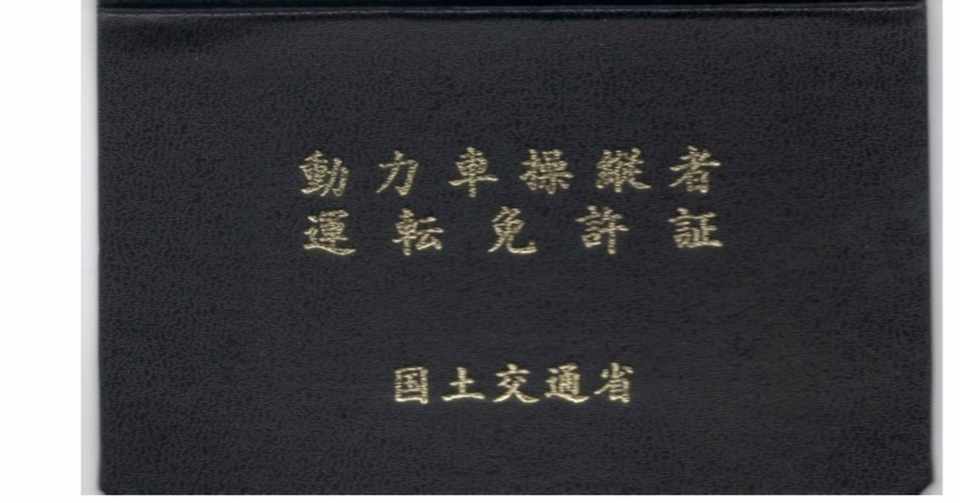 動力車操縦者
運転免許証
国土交通省